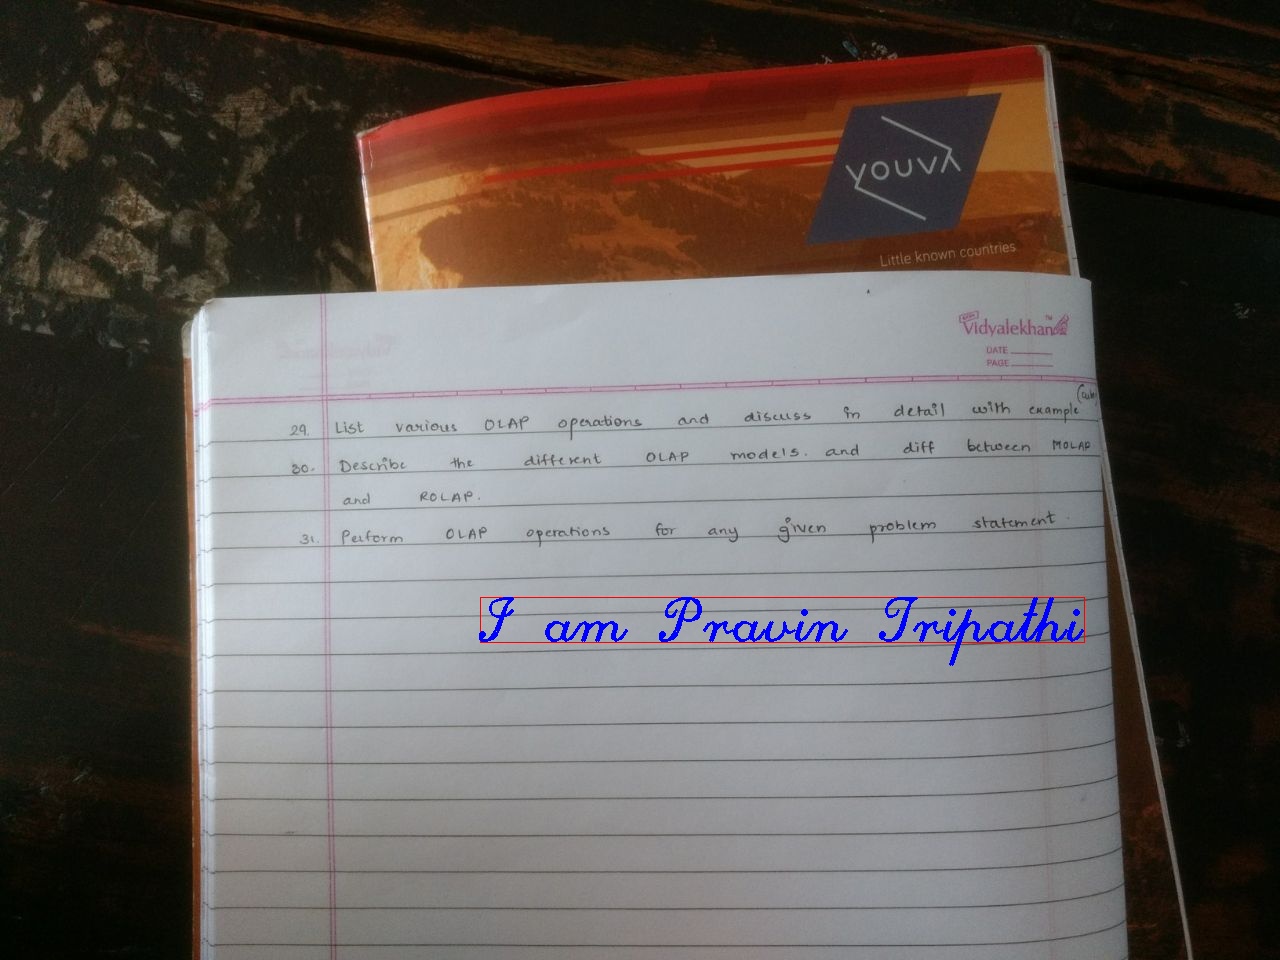 YOUVA
Little known countries
Vidyalekhan™
DATE
PAGE
29. List various OLAP operations and discuss in detail with example
30. Describe the different OLAP models. and diff between MOLAP
and ROLAP.
31. Perform OLAP operations for any given problem statement.
I am Pravin Tripathi